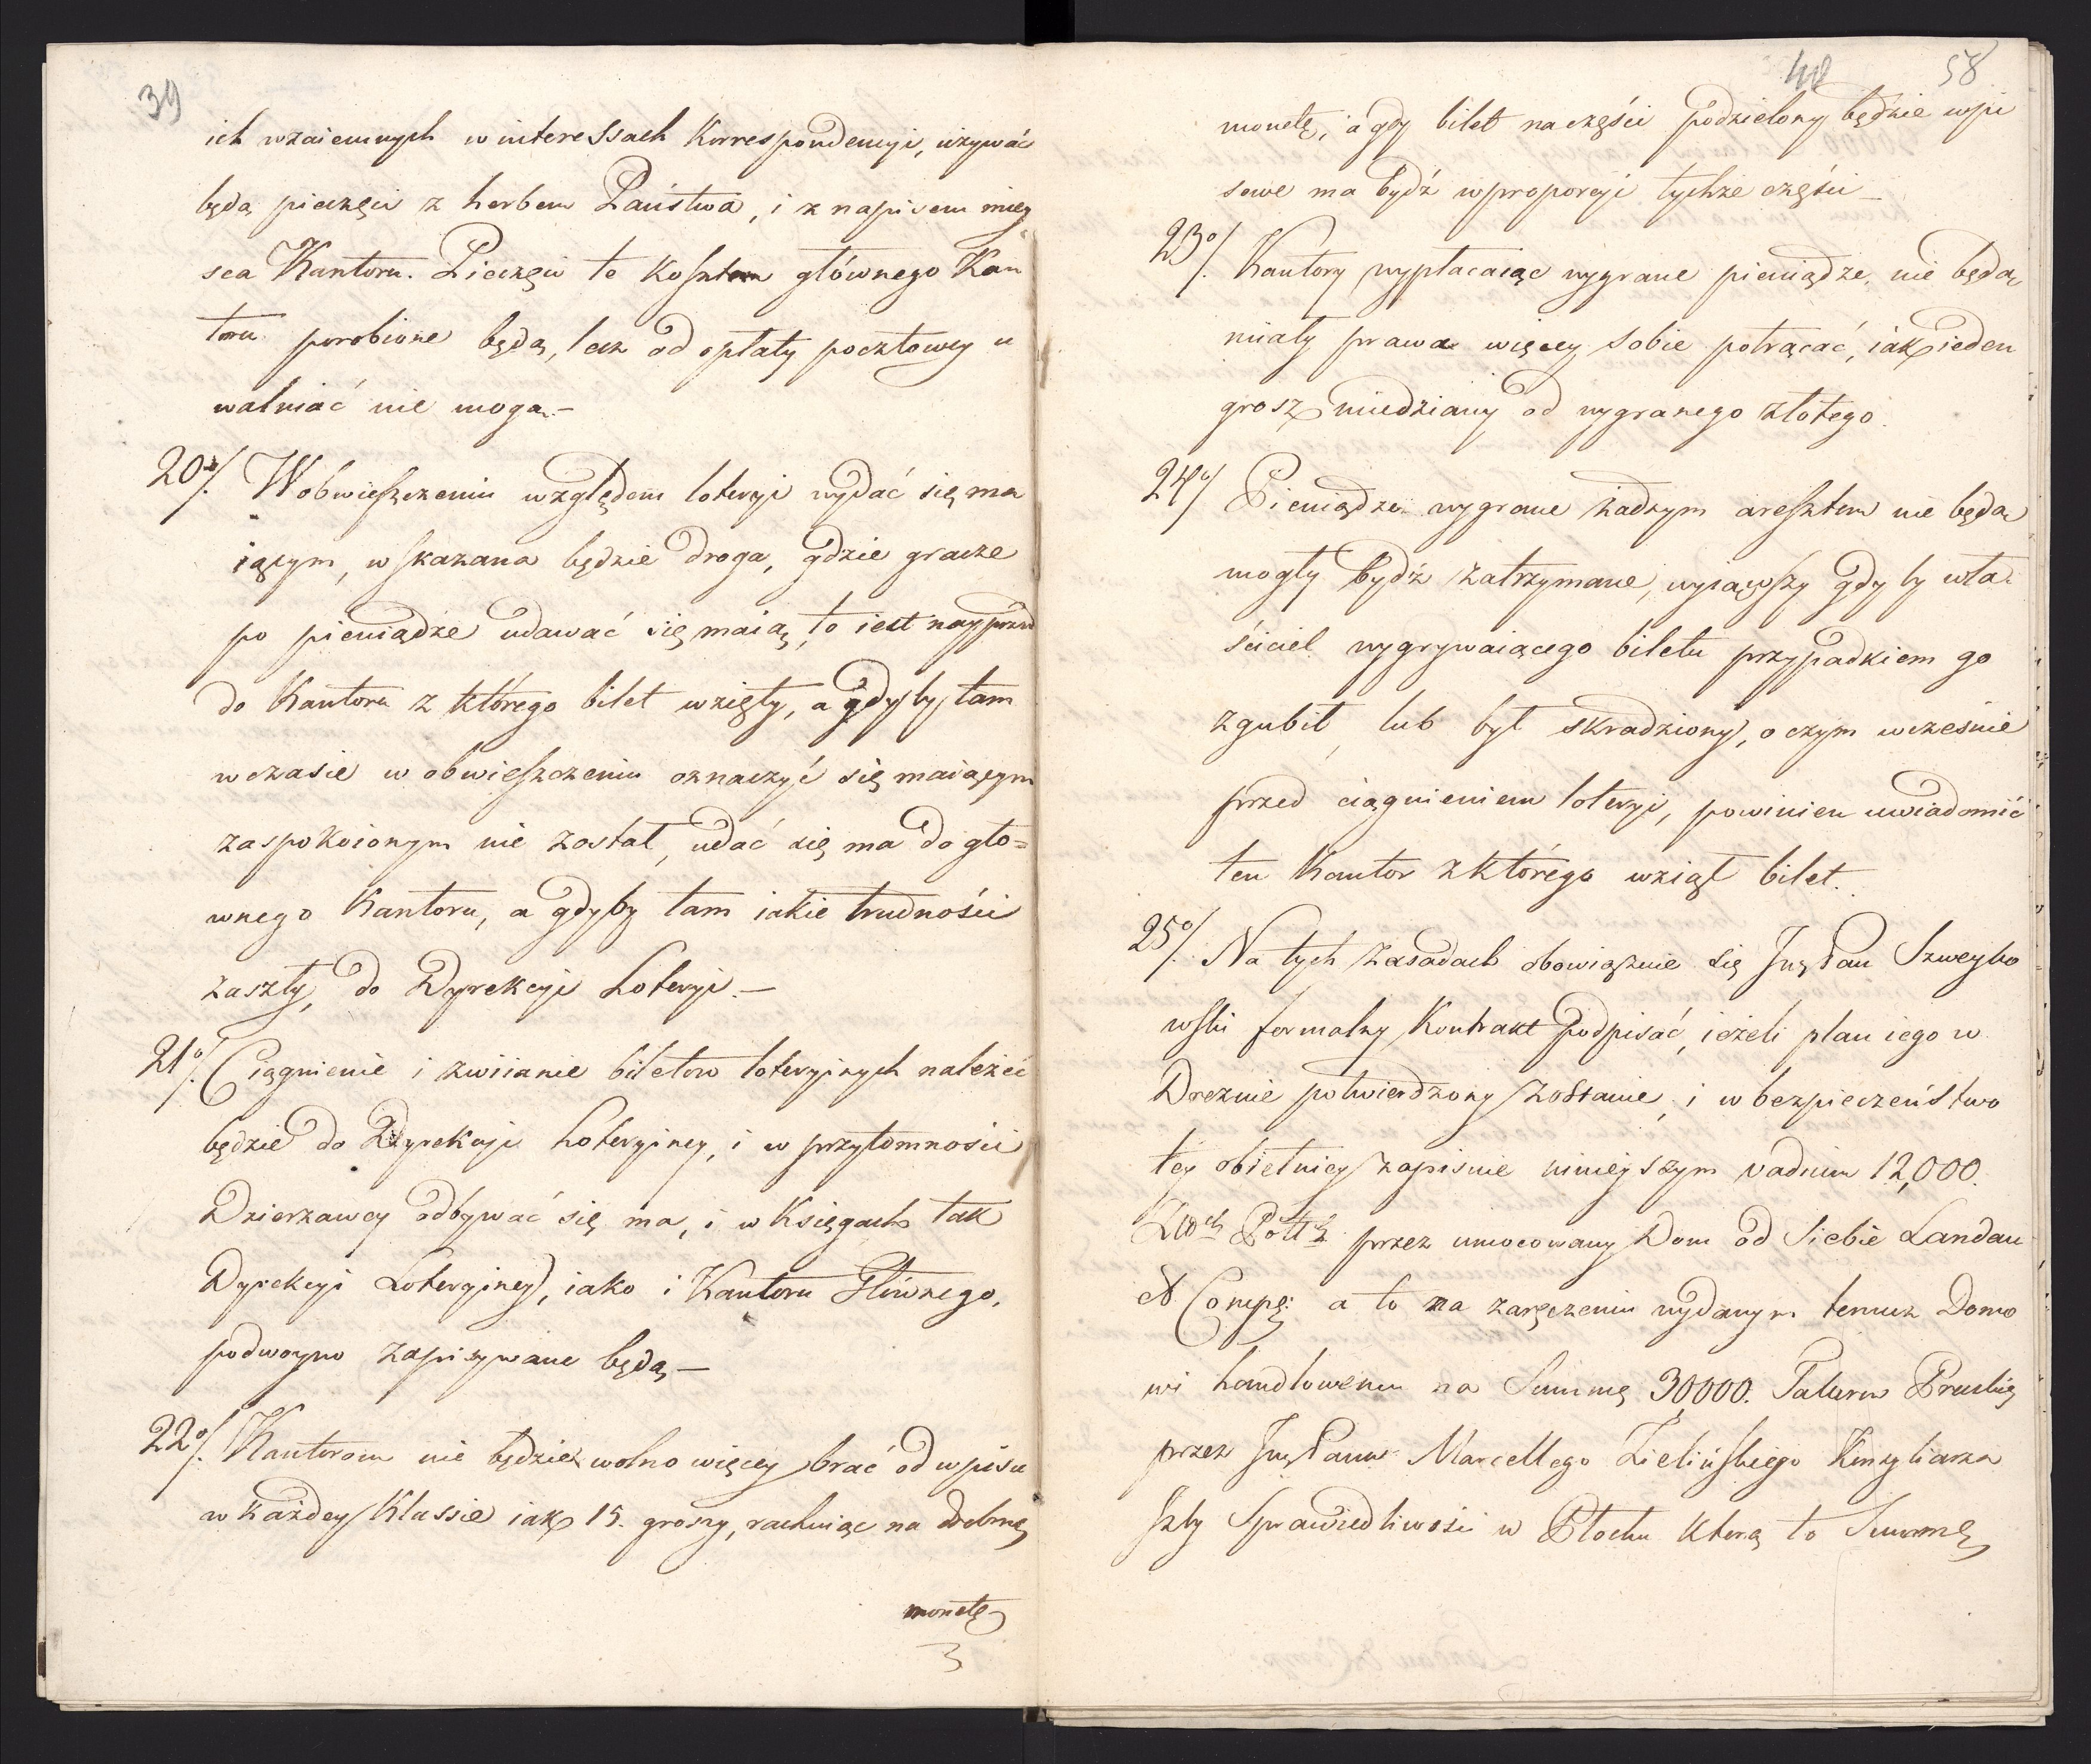 39
ich wzaiemnych w interessach Korrespondencyi, używać
będą pieczęci z herbem Państwa, i z napisem miey
sca Kantoru. Pieczęci te kosztem głównego Kan
toru porobione będą, lecz od opłaty pocztowey u
walniać nie mogą.—
20o/. W obwieszczeniu względem loteryi wydać się ma
iącym, wskazana będzie droga, gdzie gracze
po pieniądze udawać się maią, to iest naypierw
do Kantoru z którego bilet wzięty, a gdyby tam
w czasie w obwieszczeniu oznaczyć się maiącym
zaspokoionym nie został, udać się ma do głó=
wnego Kantoru, a gdyby tam iakie trudności
zaszły, do Dyrekcyi Loteryi.—
21o/. Ciągnienie i zwiianie biletow loteryinych należeć
będzie do Dyrekcyi Loteryiney, i w przytomności
Dzierzawcy odbywać się ma, i w Księgach tak
Dyrekcyi Loteryiney, iako i Kantoru Głównego,
podwoyno zapisywane będą—
22o/. Kantorom nie będzie wolno więcey brać od wpisu
w każdey Klassie iak 15. groszy, rachuiąc na drobną
monetę
3
40 58
monetę, a gdy bilet na części podzielony będzie wpi
sowe ma bydź w proporcyi tychże części—
23o/. Kantory wypłacaiąc wygrane pieniądze, nie będą
miały prawa więcey sobie potrącać, iak ieden
grosz miedziany od wygranego złotego.
24o/ Pieniądze wygrane żadnym aresztem nie będą
mogły bydź zatrzymane, wyiąwszy gdyby wła=
ściciel wygrywaiącego biletu przypadkiem go
zgubił, lub był skradziony, o czym wcześnie
przed ciągnieniem loteryi, powinien uwiadomić
ten Kantor z którego wziął bilet.
25o/. Na tych zasadach obowiązuie się Pan Szweyko
wski formalny Kontrakt podpisać, ieżeli plan iego w
Dreznie potwierdzony zostanie, i w bezpieczeństwo
tey obietnicy zapisuie nineyszym vadium 12,000.
przez umocowany Dom od siebie Landau
et Comp: a to na zaręczeniu wydanym temuż Domo
wi handlowemu na Summę 30000. Talarow Pruskich
przez Pana Marcellego Zielińskiego Konsyliarza
Izby Sprawiedliwości w Płocku którą to Summę